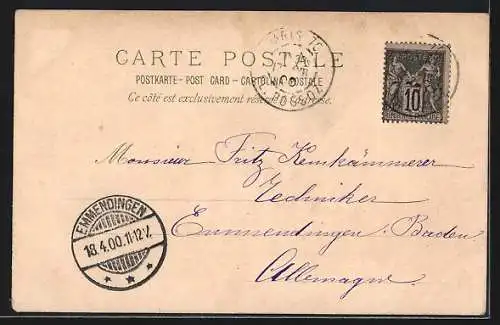 CARTE POSTALE
POSTKARTE - POST CARD - CARTOLINA POSTALE
Ce côté est exclusivement réservé à l'adresse.
PARIS
10
Monsieur Fritz Kernkämmerer
Techniker
Emmendingen, Baden
Allemagne.
EMMENDINGEN
18.4.00.11-12V.